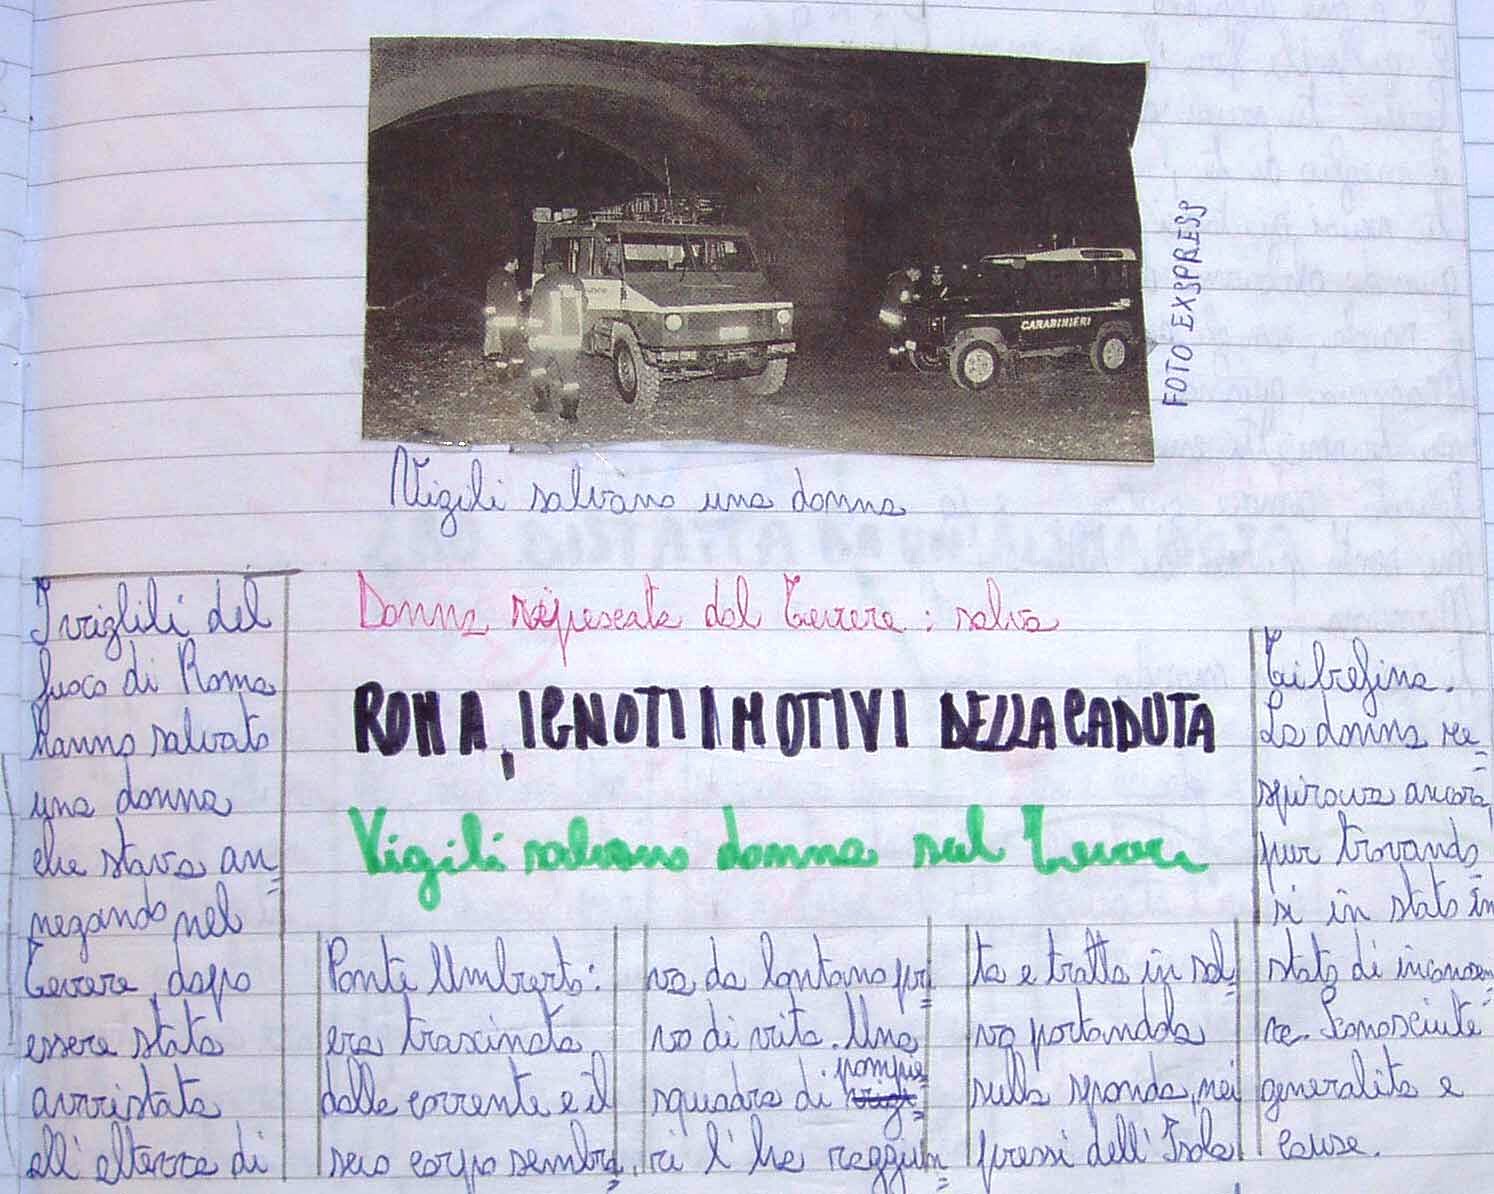 CARABINIERI
FOTO EXSPRESS
Vigili salvano una donna
Donna ripescata dal Tevere: salva
ROMA, IGNOTI I MOTIVI DELLA CADUTA
Vigili salvano donna sul Tevere
I vigili del
fuoco di Roma
hanno salvato
una donna
che stava an=
negando nel
Tevere, dopo
essere stata
avvistata
all'altezza di
Ponte Umberto:
era trascinata
dalla corrente e il
suo corpo sembra=
va da lontano pri=
vo di vita. Una
squadra di pompie=
ri l'ha raggiun=
ta e tratta in sal=
vo portandola
sulla sponda, nei
pressi dell'Isola
Tibrefina.
La donna re=
spirava ancora,
pur trovando=
si in stato in
stato di inconscen=
za. Sconosciute
generalità e
cause.